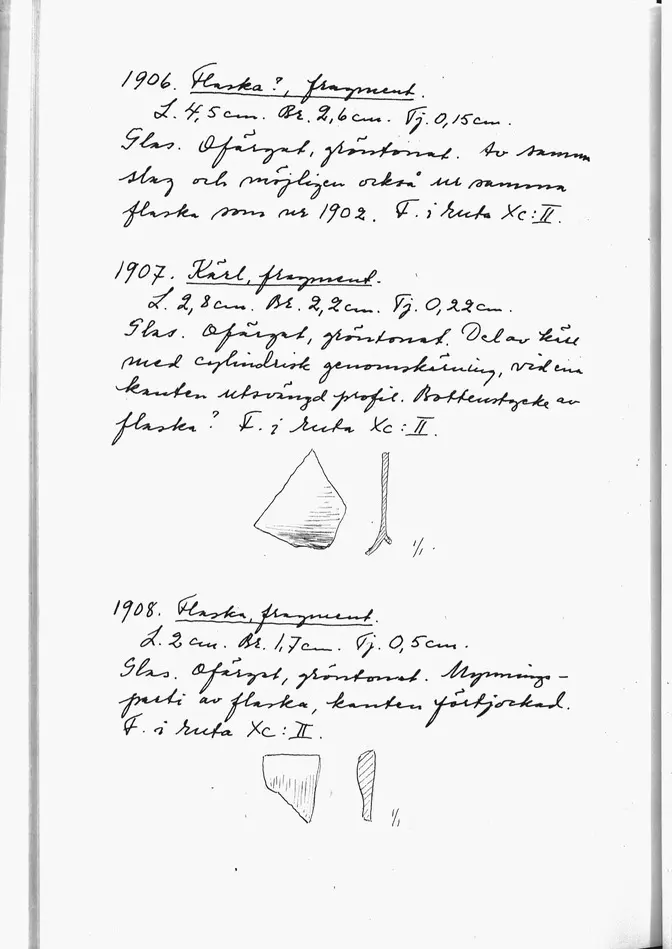 1906. Flaska?, fragment.
L. 4,5 cm. Br. 2,6 cm. Tj. 0,15 cm.
Glas. Ofärgat, gröntonat. Av samma
slag och möjligen också ur samma
flaska som nr 1902. F. i ruta Xc:II.
1907. Kärl, fragment.
L. 2,8 cm. Br. 2,2 cm. Tj. 0,22 cm.
Glas. Ofärgat, gröntonat. Del av kärl
med cylindrisk genomskärning, vid ena
kanten utsvängd profil. Bottenstycke av
flaska? F. i ruta Xc:II.
1/1.
1908. Flaska, fragment.
L. 2 cm. Br. 1,7 cm. Tj. 0,5 cm.
Glas. Ofärgat, gröntonat. Mynnings-
parti av flaska, kanten förtjockad.
F. i ruta Xc:II.
1/1